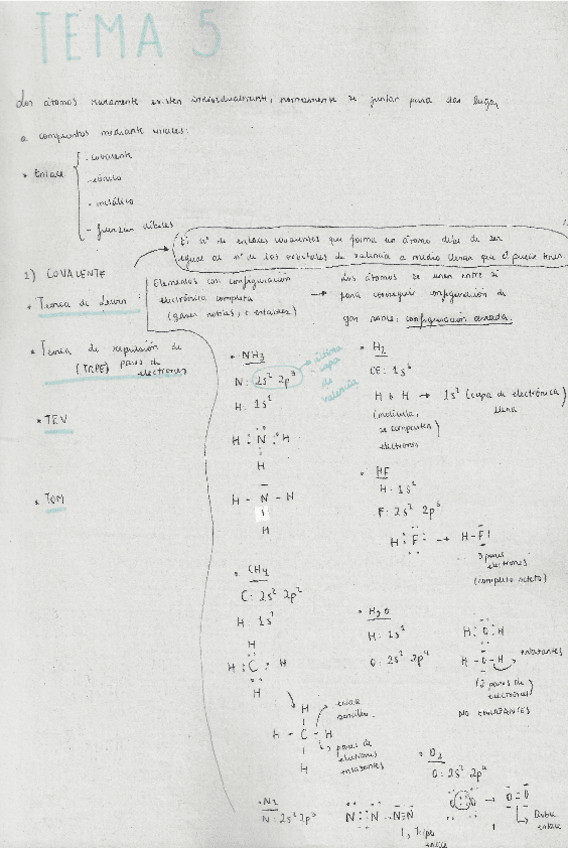 TEMA 5
Los átomos raramente existen individualmente, normalmente se juntan para dar lugar
a compuestos mediante enlaces:
• Enlace
- covalente
- iónico
- metálico
- fuerzas débiles
El nº de enlaces covalentes que forma un átomo debe de ser
igual al nº de los orbitales de valencia a medio llenar que él puede tener.
1) COVALENTE
• Teoría de Lewis
• Teoría de repulsión de
(TRPE) pares de
electrones
• TEV
• TOM
Elementos con configuración
electrónica completa
(gases nobles, estables)
→ Los átomos se unen entre sí
para conseguir configuración de
gas noble: configuración cerrada.
• NH3
N: 2s² 2p³
capa de
valencia
H: 1s¹
H : N : H
H
H - N - H
H
• H2
CE: 1s¹
H + H → 1s² (capa de electrónica)
llena
(molécula,
se comparten
electrones)
• HF
H: 1s¹
F: 2s² 2p⁵
H : F : → H-F
3 pares
electrones
(completo octeto)
• CH4
C: 2s² 2p²
H: 1s¹
H
H : C : H
H
H
H - C - H
H
enlace
sencillo
pares de
electrones
enlazantes
• H2O
H: 1s¹
O: 2s² 2p⁴
H : O : H
H - O - H
enlazantes
(2 pares de
electrones)
NO ENLAZANTES
• O2
O: 2s² 2p⁴
O :: O → O = O
Doble
enlace
• N2
N: 2s² 2p³
N ::: N → N≡N
Triple
enlace